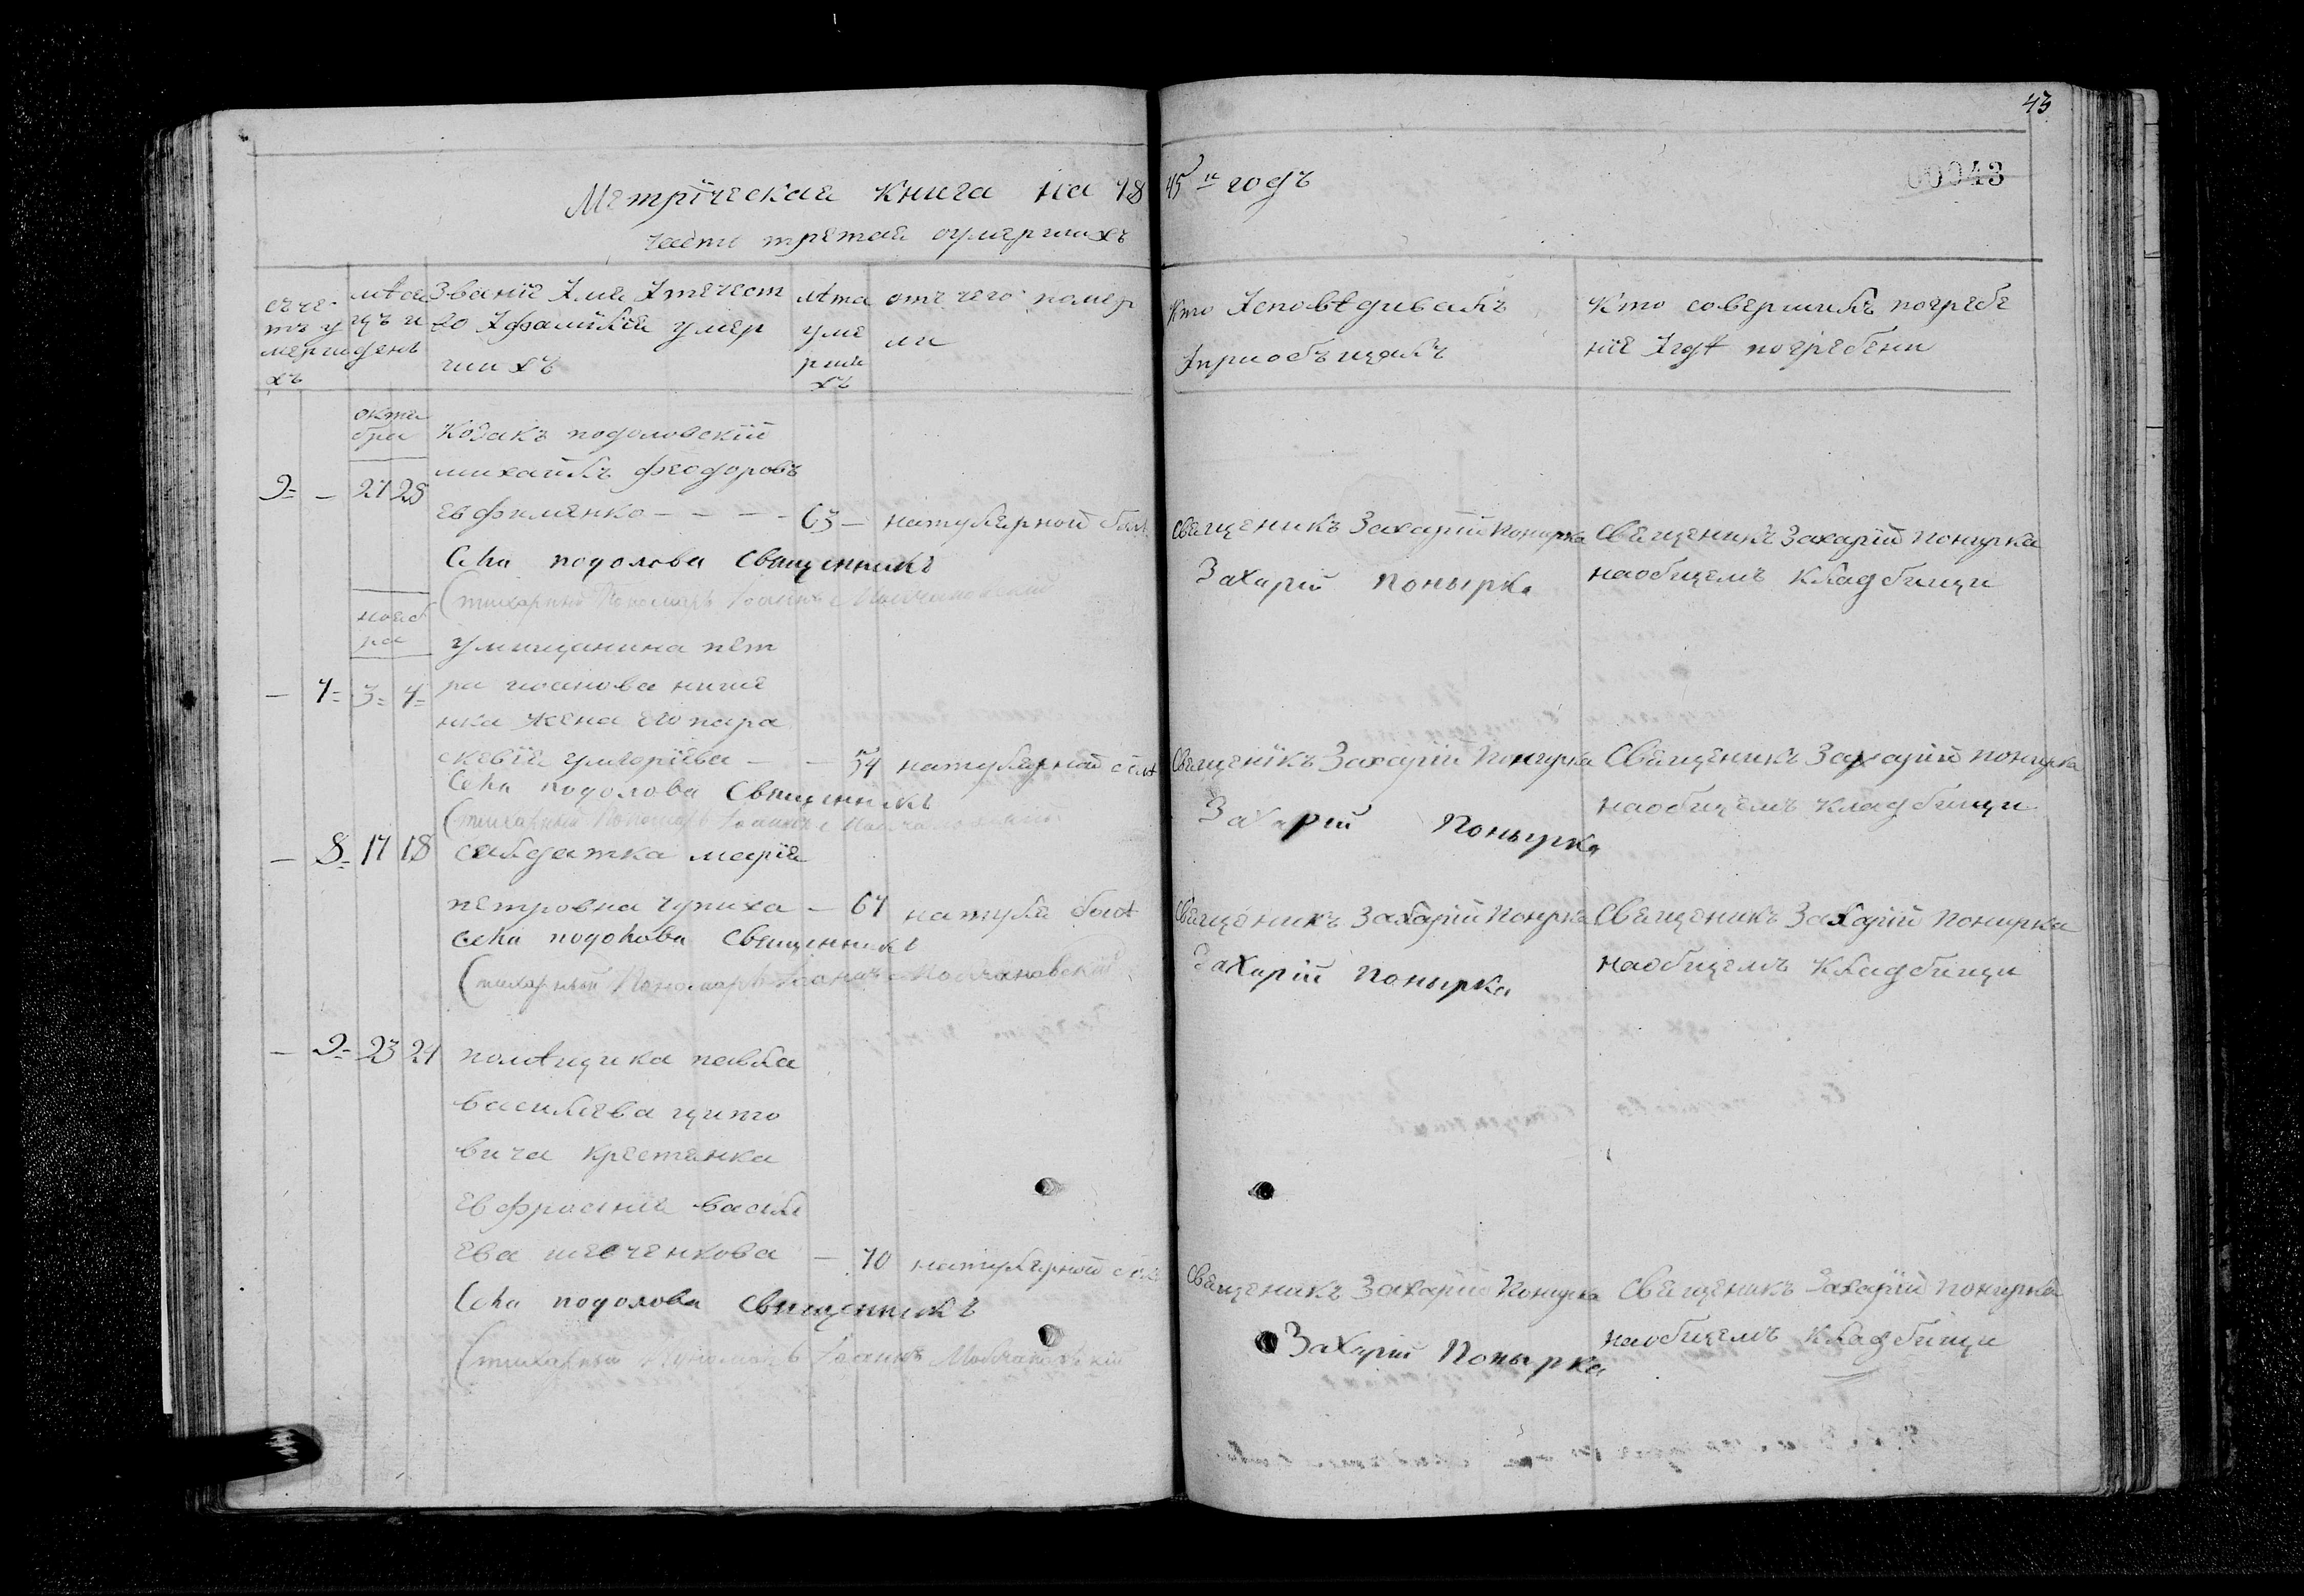 43
00043
Метрїческая книга на 1845го годъ
часть третая оумершихъ
счетъ умершихъ
мѣсяцъ и день
Званїе Имя Iтечество Iфамилїя умершихъ
лѣта умершихъ
отъ чего померли
Кто Iсповѣдивалъ Iприобъщалъ
Кто совершилъ погребенїе Iгдѣ погребени
октября
Козакъ подоловскїй
михаилъ феодоровъ
9 - 27 28
евфименко - - - - 63 - натулярной
Священикъ Захарїй Понирка
Священикъ Захарїй Понирка
на общемъ кладбищи
Села подолова Священникъ Захарїй Понырка
Стихарный Пономарь Іоаннъ Молчановскій
ноября
умищанина пет
- 7 3 4 ра иоанова
нка жена его пара
скевїя григорїева - - 54 натулярной
Священїкъ Захарїй Понирка
Священикъ Захарїй Понирка
на общемъ кладбищи
Села подолова Священникъ Захарїй Понырка
Стихарный Пономарь Іоаннъ Молчановскій
- 8 17 18 салдатка марїя
петровна чупиха - 67 натуля
Священикъ Захарїй Понирка
Священикъ Захарїй Понирка
на общемъ кладбищи
Села подолова Священникъ Захарїй Понырка
Стихарный Пономарь Іоаннъ Молчановскій
- 9 23 24 помѣщика павла
василиева
вича крестянка
евфросинїя васил
ева шевченкова - 70 натулярной
Священикъ Захарїй Понирка
Священикъ Захарїй Понирка
на общемъ кладбищи
Села подолова Священникъ Захарїй Понырка
Стихарный Пономарь Іоаннъ Молчановскій